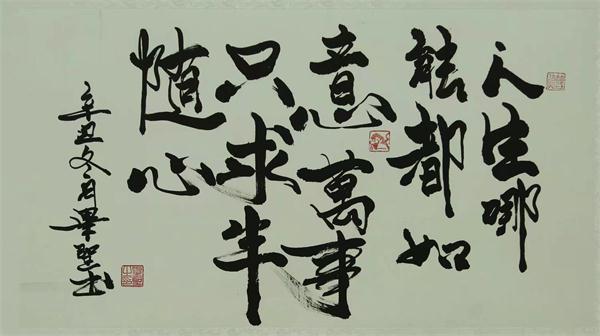 人生哪
能都如
意萬事
只求半
随心
辛丑冬月